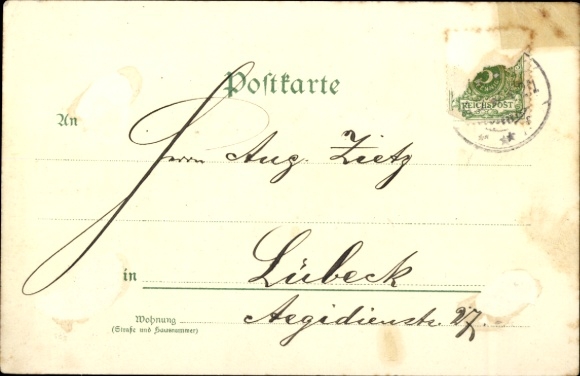 Postkarte
REICHSPOST
An
Herrn Aug. Zietz
in Lübeck
Wohnung Aegidienstr. 27.
(Straße und Hausnummer)